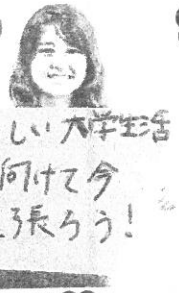 しい大学生活
向けて今
張ろう!